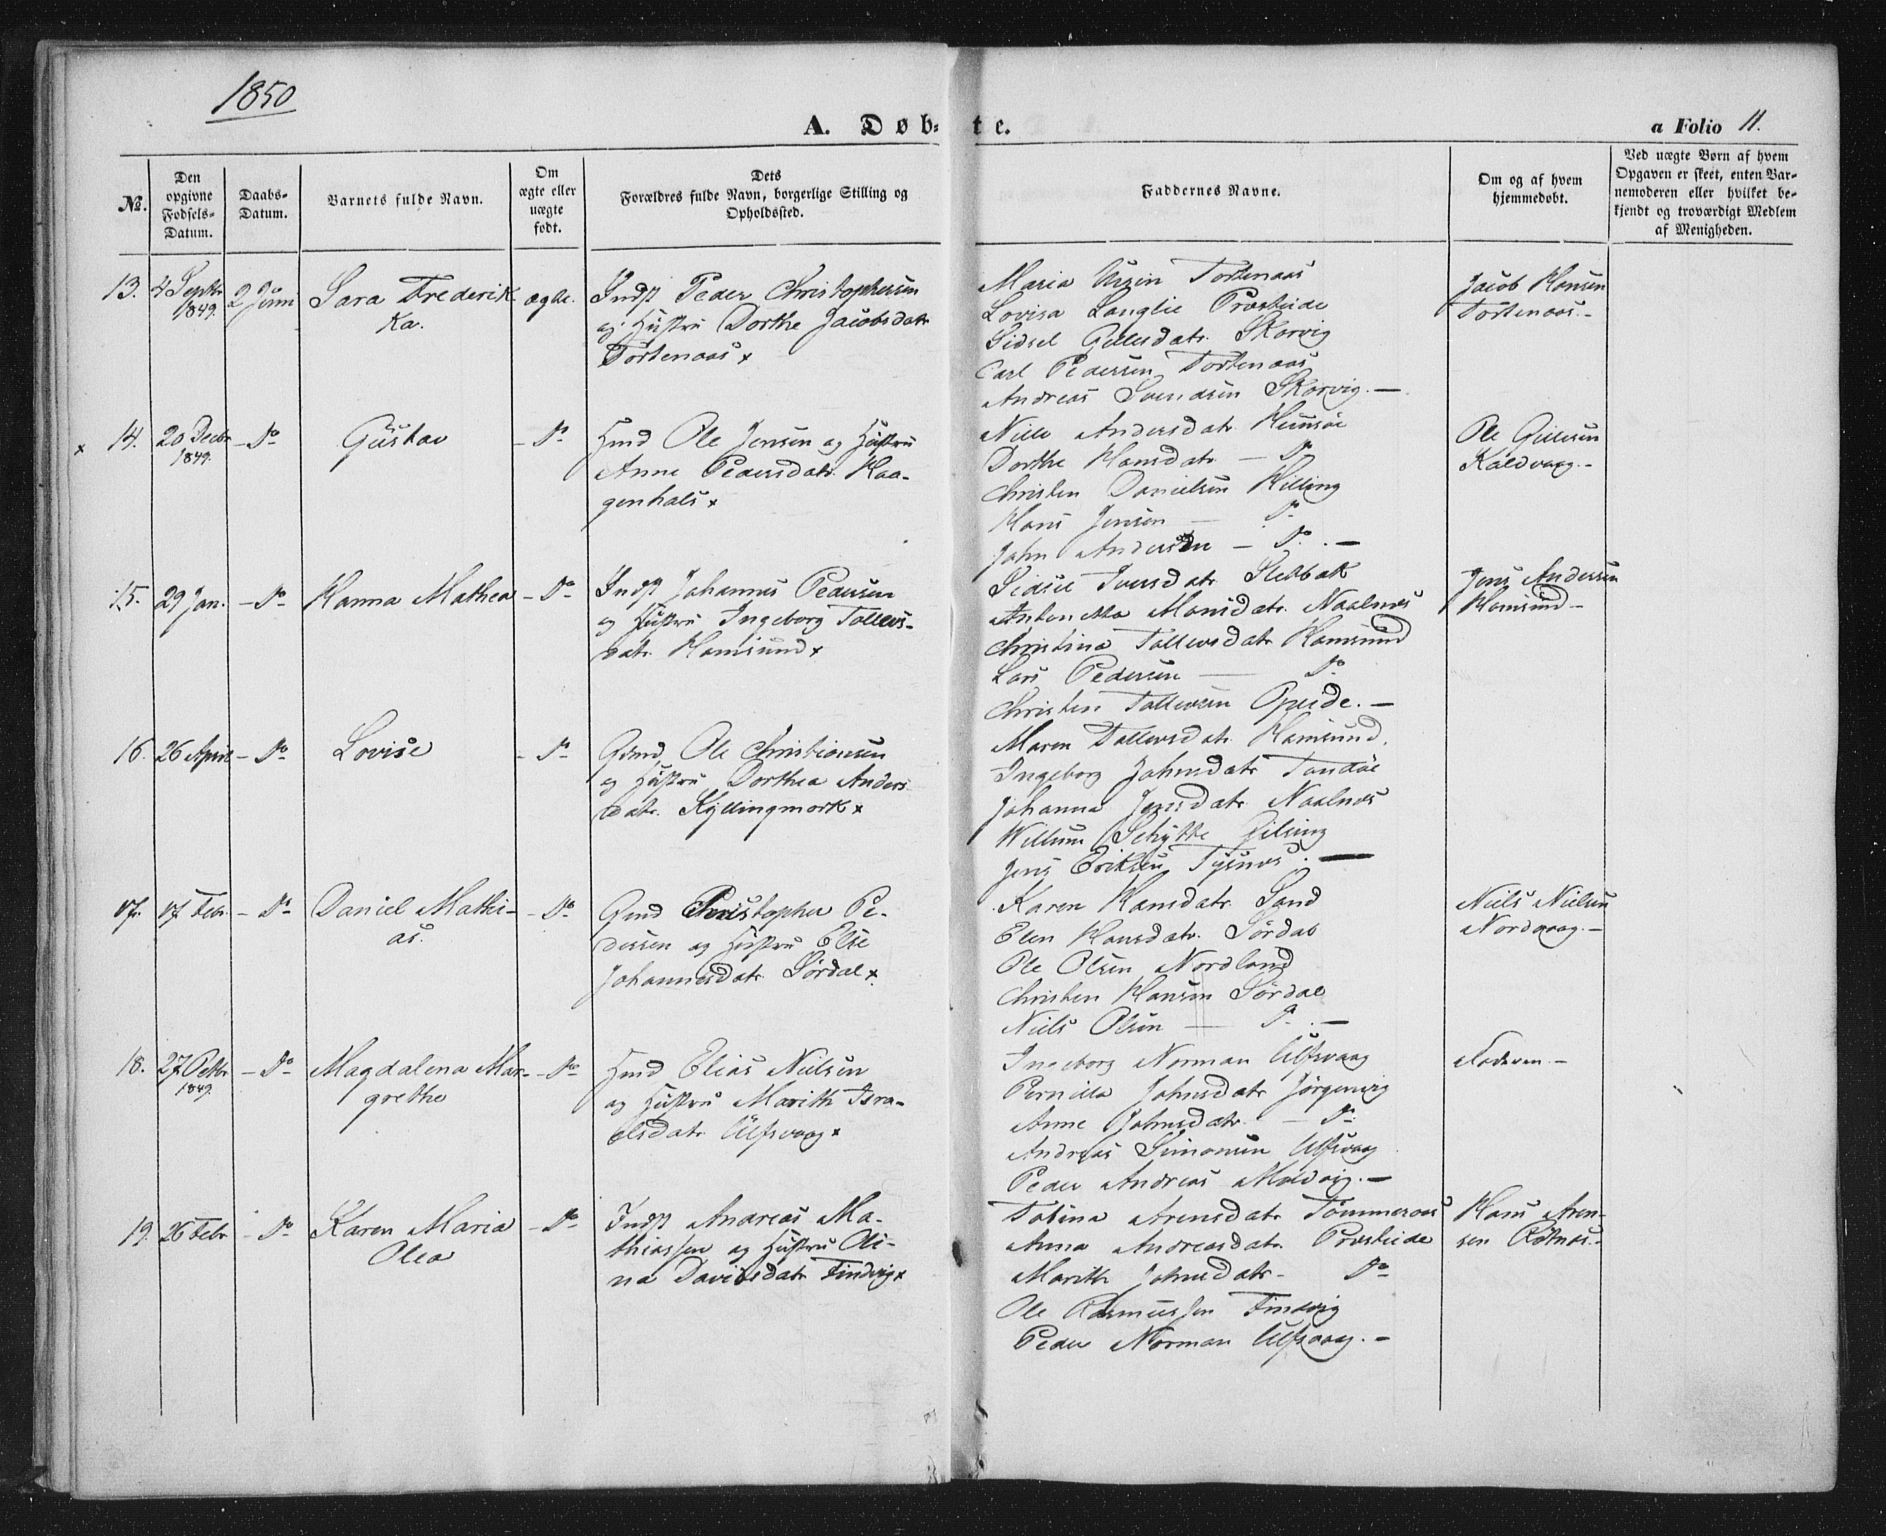 1850
A. Døbte.
a Folio 11.
№.
Den opgivne Fødsels-Datum.
Daabs-Datum.
Barnets fulde Navn.
Om ægte eller uægte født.
Dets Forældres fulde Navn, borgerlige Stilling og Opholdssted.
Faddernes Navne.
Om og af hvem hjemmedøbt.
Ved uægte Børn af hvem Opgaven er skeet, enten Barnemoderen eller hvilket bekjendt og troværdigt Medlem af Menigheden.
13. 4 Septbr 1849. 2 Juni Sara Frederik
ka.
ægte.
Indst Peder Christophersen
og Hustru Dorthe Jacobsdatr
Tortenaas x
Maria Tortenaas
Lovisa Langlie Præsteide
Sidsel Skarvig
Carl Pedersen Tortenaas
Andreas Svendsen Skarvig. —
Jacob Hansen
Tortenaas. -
x 14. 20 Decbr 1849. - Do Gustav - Do
Hmd Ole Jensen og Hustru
Anne Pedersdatr. Haa-
genhals x
Nille Andersdatr
Dorthe Hansdatr - Do
Christen Danielsen Killing
Hans Jensen - Do
John Andersen - Do. —
Ole
Kaldvaag. -
15. 29 Jan. - Do Hanna Mathea - Do
Indst Johannes Pedersen
og Hustru Ingeborg Tollevs-
datr. Hamsund x
Iversdatr
Hansdatr. Naalnæs
Christina Tollevsdatr Hamsund
Lars Pedersen — Do
Christen Tollevsen —
Jens Andersen
Hamsund -
16. 26 April - Do Lovise - Do
Gmd Ole Christiansen
og Hustru Dorthea Anders
datr. Kyllingmark x
Maren Tollevsdatr Hamsund.
Ingeborg Johnsdatr
Johanna Jensdatr Naalnæs
Willum Schytte
Jens Eriksen Tysnæs. —
17. 17 Febr. - Do Daniel Mathi-
as.
- Do
Gmd Christopher Pe-
dersen og Hustru Else
Johannesdatr Sørdal x
Karen Hansdatr. Sand
Elen Hansdatr. Sørdal
Ole Olsen Nordland
Christen Hansen Sørdal
Niels Olsen — Do. —
Niels Nielsen
Nordvaag. -
18. 27 Octbr 1849. - Do Magdalena Mar-
grethe
- Do
Hmd Elias Nielsen
og Hustru Marith Isra-
elsdatr Ulfsvaag x
Ingeborg Norman Ulfsvaag
Pernilla Johnsdatr Jørgenvig
Anne Johnsdatr. - Do
Andreas Simonsen Ulfsvaag
Peder Andreas —
Faderen -
19. 26 Febr - Do Karen Maria
Olea
- Do
Indst Andreas Ma-
thiassen og Hustru Oli-
na Davidsdatr Tindvig x
Arensdatr Tømmeraas
Anna Andreasdatr. Præsteide
Marith Johnsdatr - Do
Ole Rasmussen Tindvig
Peder Norman Ulfsvaag. -
Hans Aren-
sen